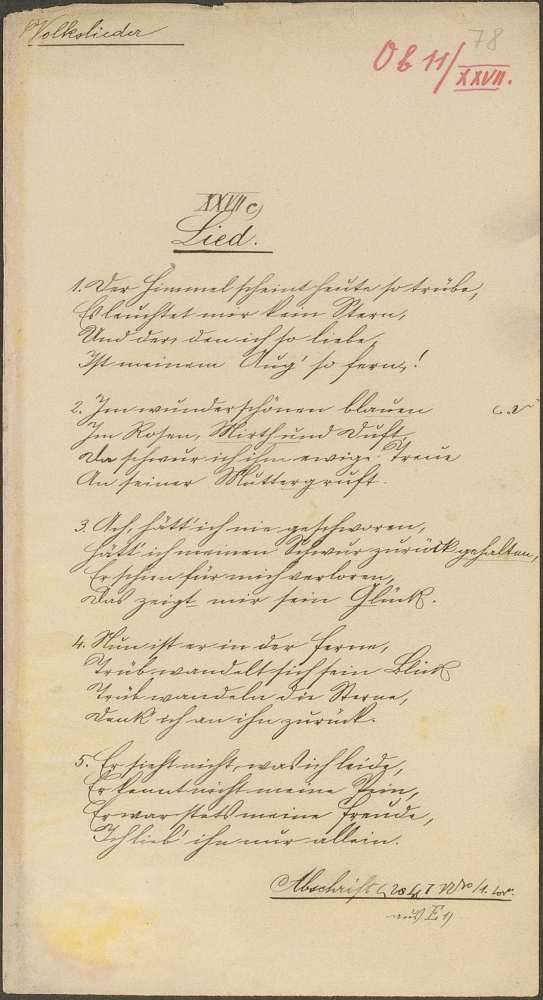 Volkslieder
78
Ob 11/XXVII.
XXVII c)
Lied.
1. Der Himmel scheint heute so trübe,
Es leuchtet mir kein Stern,
Und der, den ich so liebe,
Ist meinem Aug' so fern!
2. Im wunderschönen blauen
Im Rosen, Mirth und Duft,
Da schwur ich ihm ewige Treue
An seiner Muttergruft.
3. Ach, hätt' ich nie geschworen,
Hätt' ich meinen Schwur zurück gehalten,
Er schien für mich verloren,
Das zeigt mir sein Glück.
4. Nun ist er in der Ferne,
Trüb wandelt sich sein Blick
Trüb wandeln die Sterne,
Denk ich an ihn zurück.
5. Er sieht nicht, was ich leide,
Er kennt nicht meine Pein,
Er war stets meine Freude,
Ich lieb' ihn nur allein.
Abschrift
aus E 1)